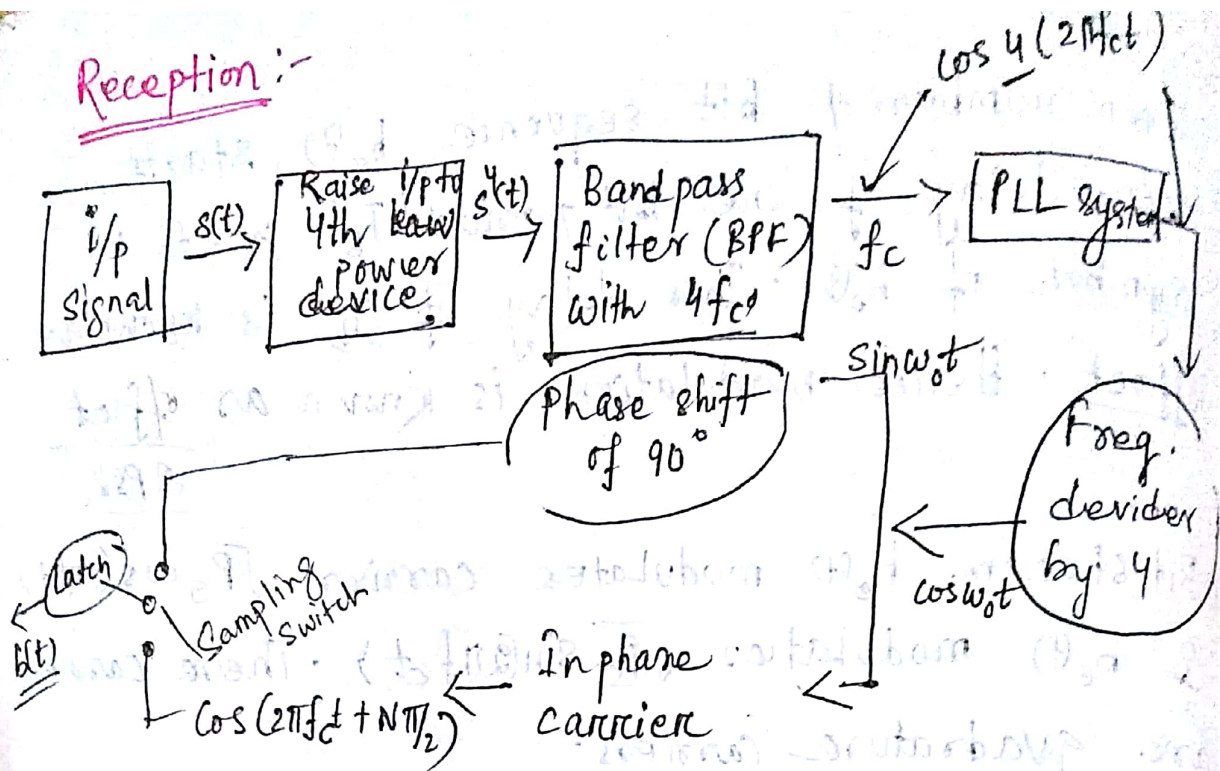 Reception :-
cos 4 (2πfct)
i/p
signal
s(t)
Raise i/p to
4th
power
device
s⁴(t)
Bandpass
filter (BPF)
with 4fc
fc
PLL system
Sinω₀t
phase shift
of 90°
Freq.
devider
by 4
cosω₀t
Latch
Sampling
switch
b(t)
Inphase
carrier
Cos (2πfct + Nπ/2)